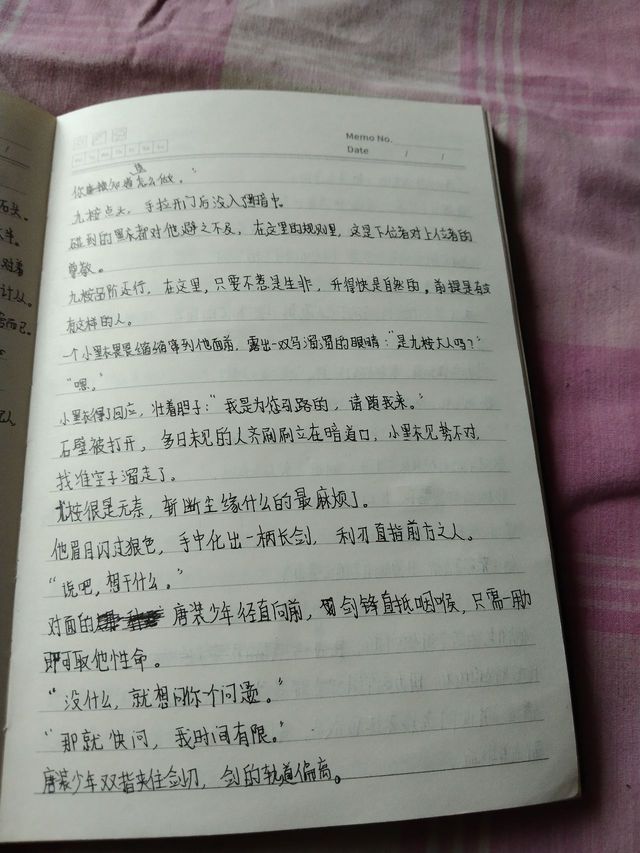 Memo No.
Date / /
你应该知道怎么做。
九桉点头，手拉开门后没入黑暗中。
碰到的黑衣都对他避之不及，在这里的规则里，这是下位者对上位者的
尊敬。
九桉品阶还行，在这里，只要不惹是生非，升得快是自然的。前提是有
有这样的人。
一个小黑衣畏畏缩缩窜到他面前，露出一双乌溜溜的眼睛：“是九桉大人吗？”
“嗯。”
小黑衣得了回应，壮着胆子：“我是为您引路的，请随我来。”
石壁被打开，多日未见的人齐刷刷立在暗道口，小黑衣见势不对，
找准空子溜走了。
九桉很是无奈，斩断尘缘什么的最麻烦了。
他眉目闪过狠色，手中化出一柄长剑，利刃直指前方之人。
“说吧，想干什么。”
对面的 唐装少年径直向前，剑锋直抵咽喉，只需一動
即可取他性命。
“没什么，就想问你个问题。”
“那就快问，我时间有限。”
唐装少年双指夹住剑刃，剑的轨道偏离。
石头。
半。
对着
计从。
而已。